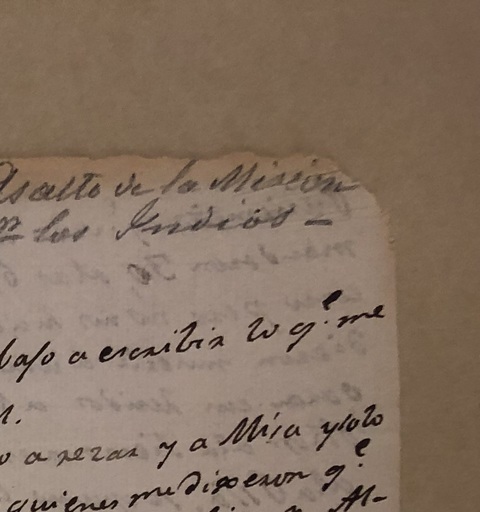 Asalto de la Mision
pr los Indios -
bajo a escribir lo q.e me
o a rezar y a Misa y solo
quienes me dixeron q.e
Al-